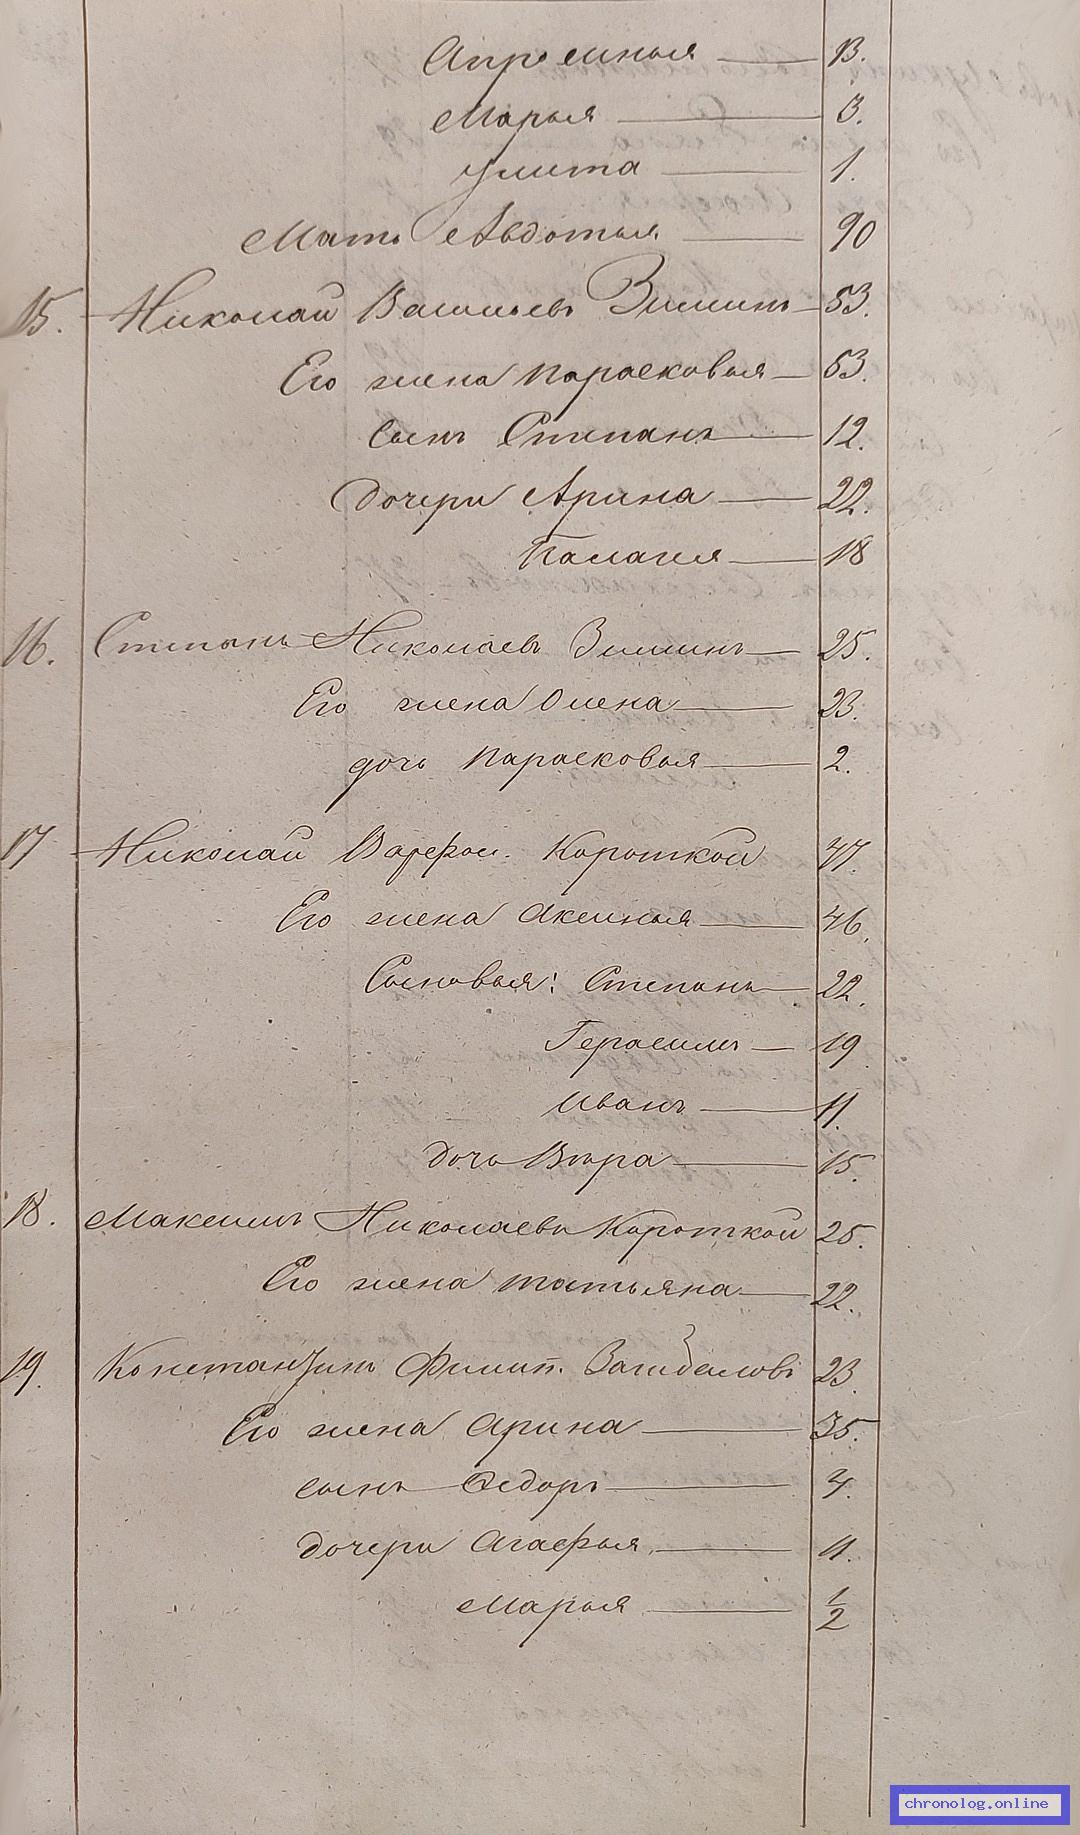 Апросинья — 13.
Марья — 3.
Улита — 1.
Мать Авдотья — 90
15. Николай Васильевъ Зиминъ — 53.
Его жена Парасковья — 53.
Сынъ Степанъ — 12.
дочери Арина — 22.
Палагея — 18
16. Степанъ Николаевъ Зиминъ — 25.
Его жена Олена — 23.
дочь Парасковья — 2.
17 Николай Варфол. Короткой 47.
Его жена Аксинья — 46.
Сыновья: Степанъ — 22.
Герасимъ — 19
Иванъ — 11.
дочь Вѣра — 15.
18. Максимъ Николаевъ Короткой 25.
Его жена татьяна — 22.
19. Константинъ Филип. 23.
Его жена Арина — 35.
сынъ Ѳедоръ — 4.
дочери Агафья — 11.
Марья — 1/2
chronolog.online